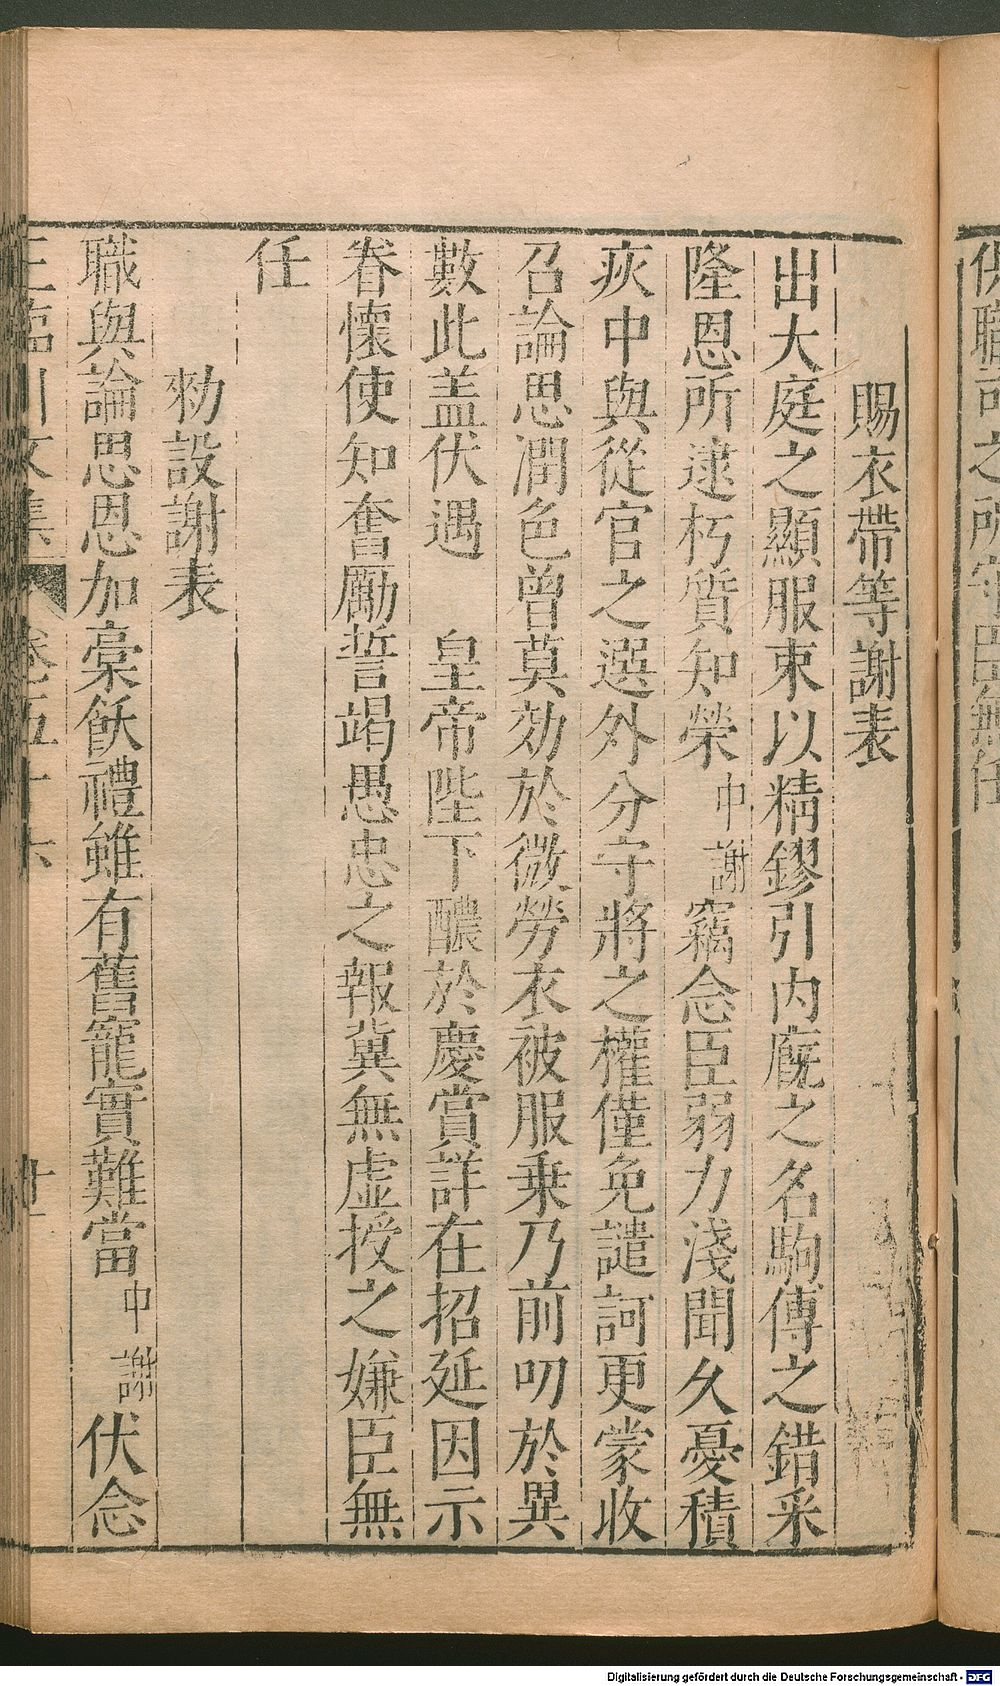 供職司之所守臣無任
賜衣帶等謝表
出大庭之顯服束以精鏐引内廐之名駒傅之錯采
隆恩所逮朽質知榮中謝竊念臣弱力淺聞久憂積
疢中與從官之選外分守將之權僅免譴訶更蒙收
召論思潤色曾莫効於微勞衣被服乗乃前叨於異
數此盖伏遇　皇帝陛下醲於慶賞詳在招延因示
眷懷使知奮勵誓竭愚忠之報冀無虚授之嫌臣無
任
勑設謝表
職與論思恩加槀飫禮雖有舊寵實難當中謝伏念
王臨川文集　卷五十六　廿
Digitalisierung gefördert durch die Deutsche Forschungsgemeinschaft - DFG